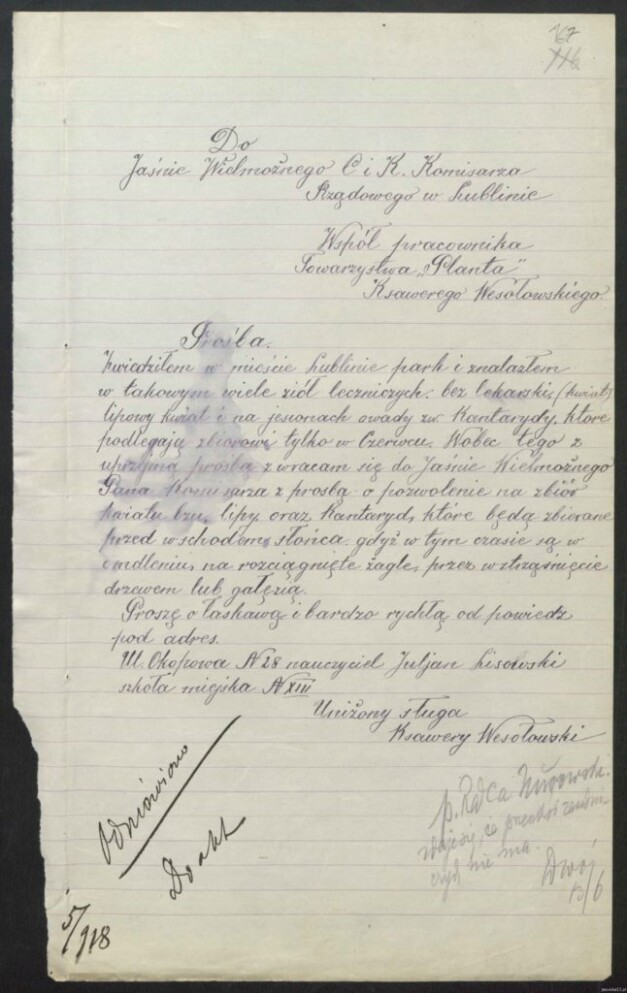 167
116
Do
Jaśnie Wielmożnego C i K. Komisarza
Rządowego w Lublinie
Współ pracownika
Towarzystwa „Planta"
Ksawerego Wesołowskiego.
Prośba.
Zwiedziłem w mieście Lublinie park i znalazłem
w takowym wiele ziół leczniczych: bez lekarski, (kwiat)
lipowy kwiat i na jesionach owady zw. Kantarydy, które
podlegają zbiorowi tylko w Czerwcu. Wobec tego z
uprzejmą prośbą zwracam się do Jaśnie Wielmożnego
Pana Komisarza z prosbą o pozwolenie na zbiór
kwiatu bzu, lipy oraz Kantaryd, które będą zbierane
przed wschodem słońca, gdyż w tym czasie są w
omdleniu, na rozciągnięte żagle, przez wstrząśnięcie
drzewem lub gałęzią.
Proszę o łaskawą i bardzo rychłą od powiedz
pod adres.
Ul. Okopowa N 28 nauczyciel Juljan Lisowski
szkoła miejska N XIII
Uniżony sługa
Ksawery Wesołowski
Odmówiono
Do akt
5/918
p. Radca
że
nie ma.
13/6